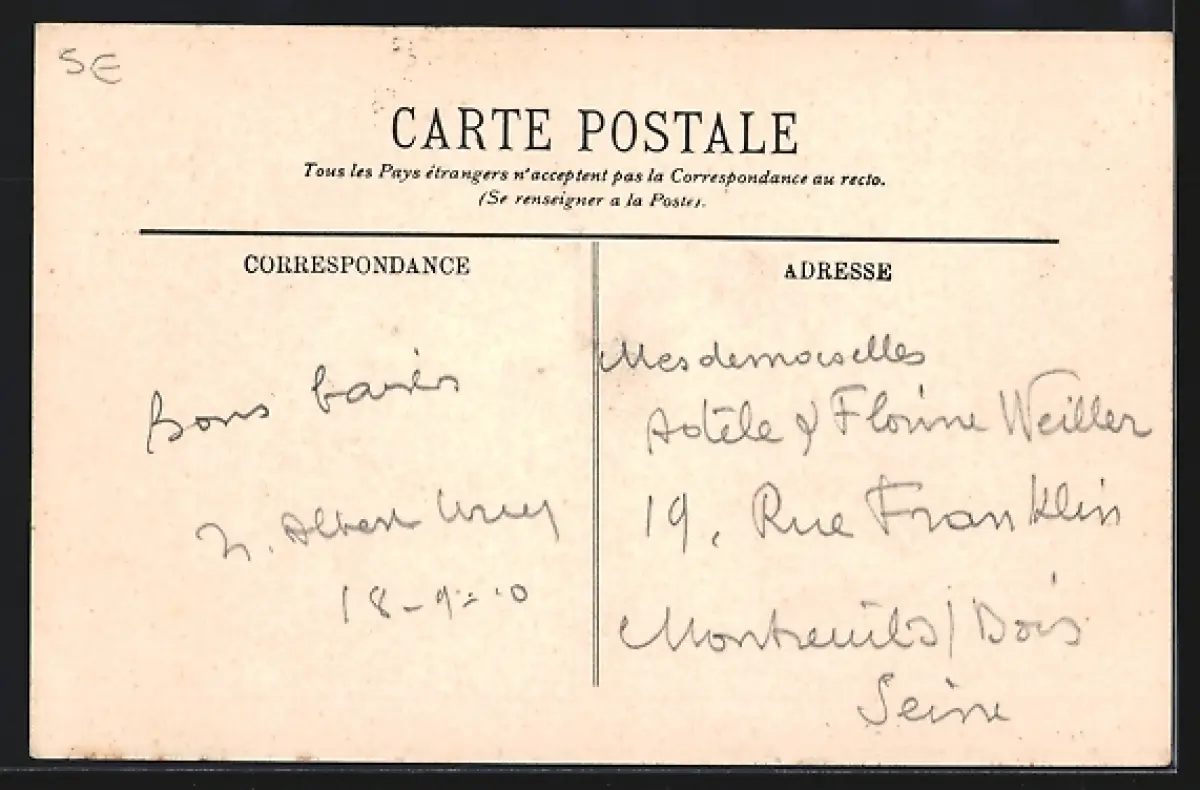 SE
CARTE POSTALE
Tous les Pays étrangers n'acceptent pas la Correspondance au recto.
(Se renseigner a la Poste).
CORRESPONDANCE
ADRESSE
Bons baisers
Albert
18-9-10
Mesdemoiselles
Adèle & Florine Weiller
19, Rue Franklin
Montreuil s/ Bois
Seine